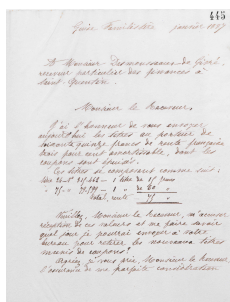 445
Guise Familistère janvier 1887
A Monsieur Desmousseaux de Givré,
receveur particulier des finances à
Saint-Quentin.
Monsieur le Receveur,
J'ai l'honneur de vous envoyer
aujourd'hui les titres au porteur de
soixante quinze francs de rente française
trois pour cent amortissable, dont les
coupons sont épuisés.
Ces titres se composent comme suit:
1 titre de 15 francs
de 60
Total, rente 75
Veuillez, Monsieur le Receveur, m'accuser
réception de ces valeurs et me faire savoir
quel jour je pourrai envoyer à votre
bureau pour retirer les nouveaux titres
munis de coupons.
Agréez, je vous prie, Monsieur le Receveur,
l'assurance de ma parfaite considération